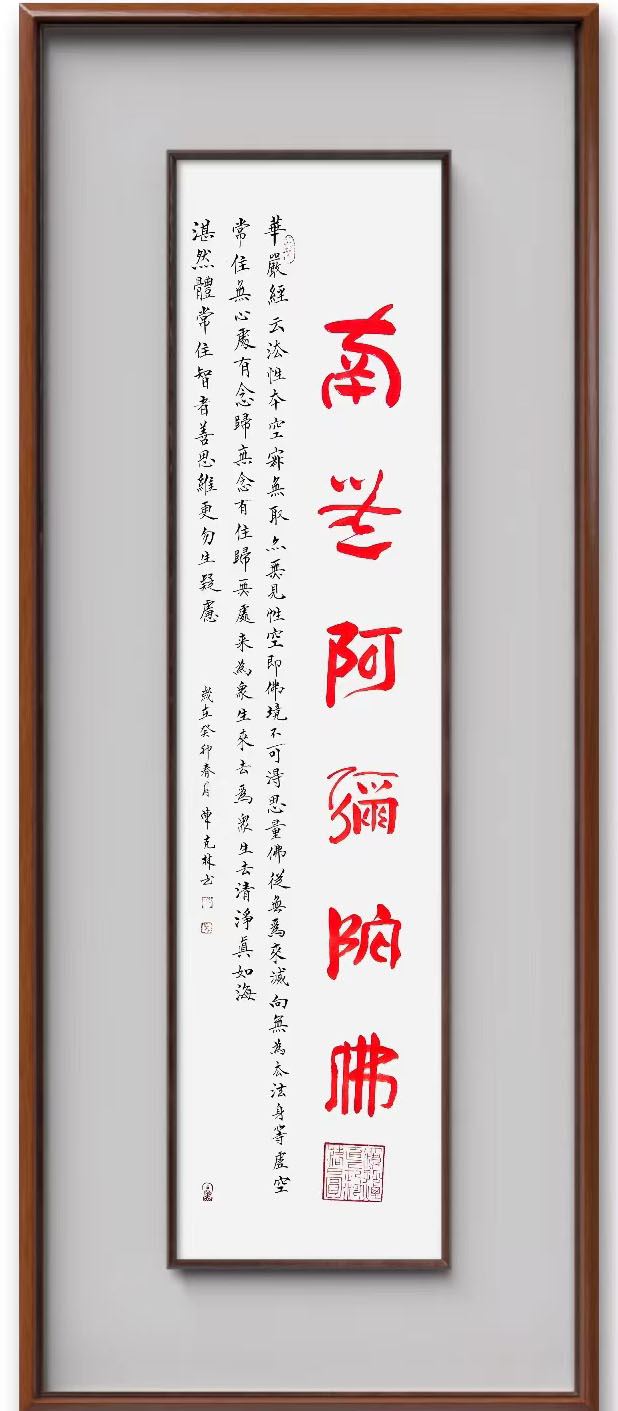 南無阿彌陀佛
華嚴經云法性本空寂無取亦無見性空即佛境不可得思量佛從無為來滅向無為去法身等虛空
常住無心處有念歸無念有住歸無處来為衆生來去為衆生去清淨真如海
湛然體常住智者善思維更勿生疑慮
歲在癸卯春月
克林书